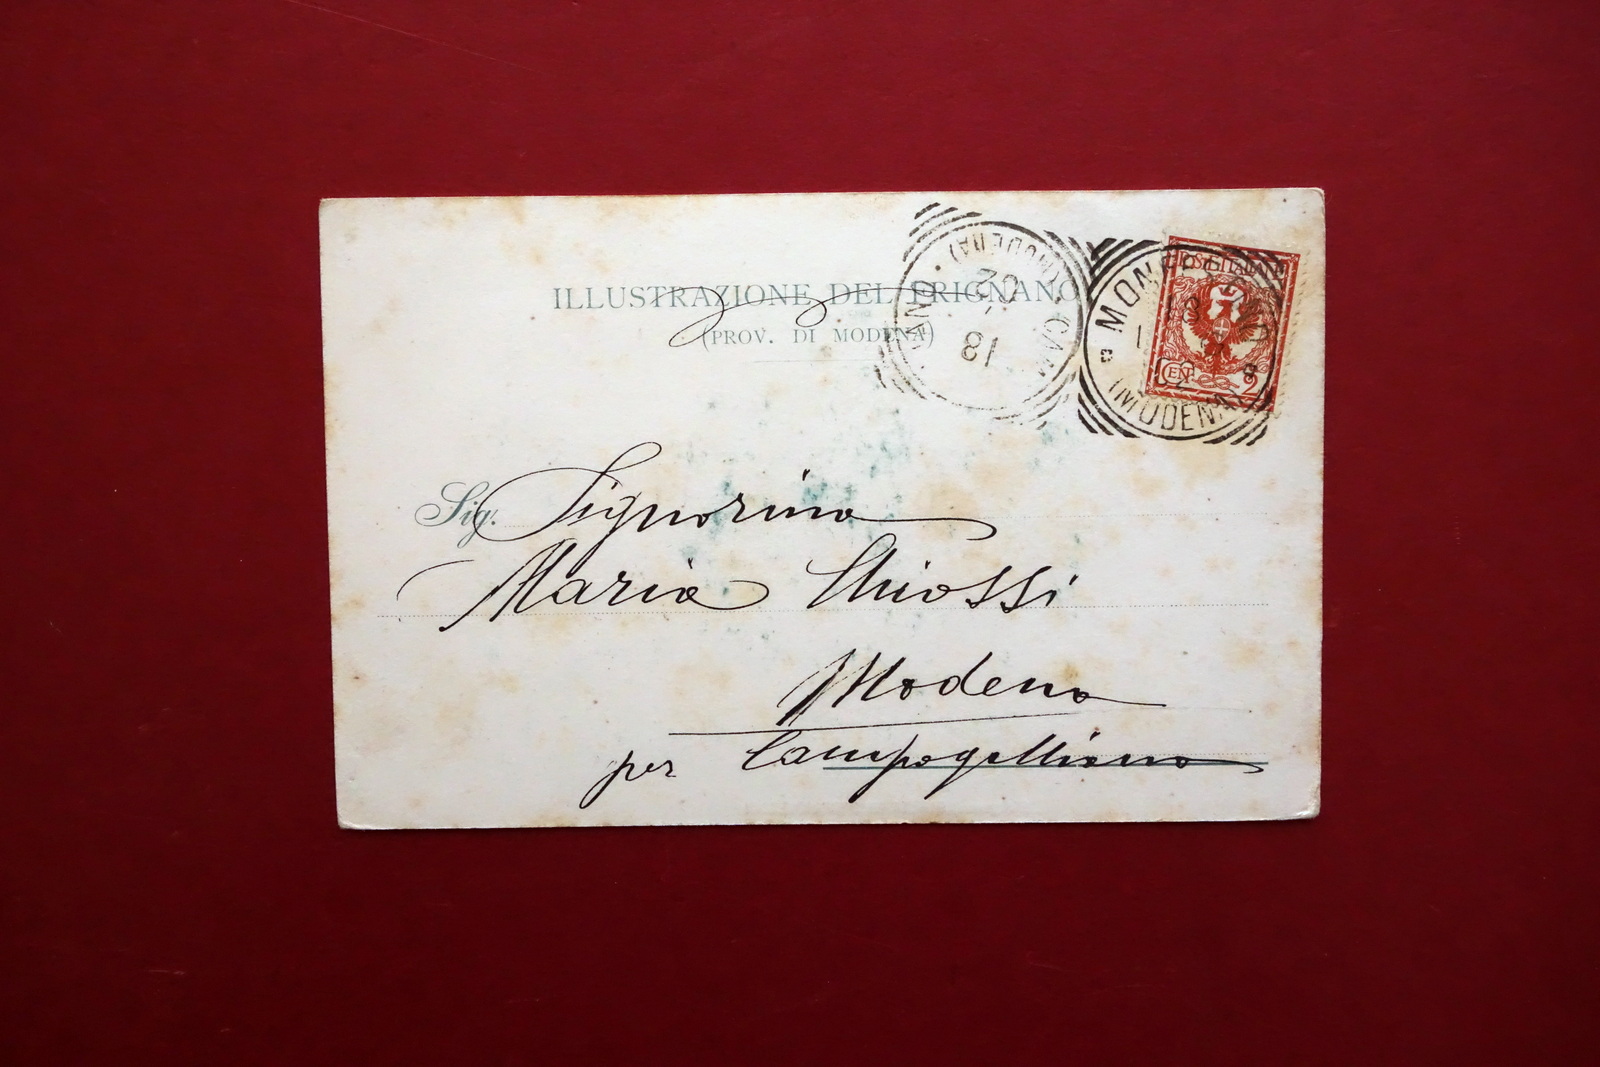 ILLUSTRAZIONE DEL FRIGNANO
(PROV. DI MODENA)
(MODENA)
02
18
POSTE ITALIANE
(MODENA)
CEN. 2
Sig. Signorina
Maria Chiossi
Modena
per Campogalliano